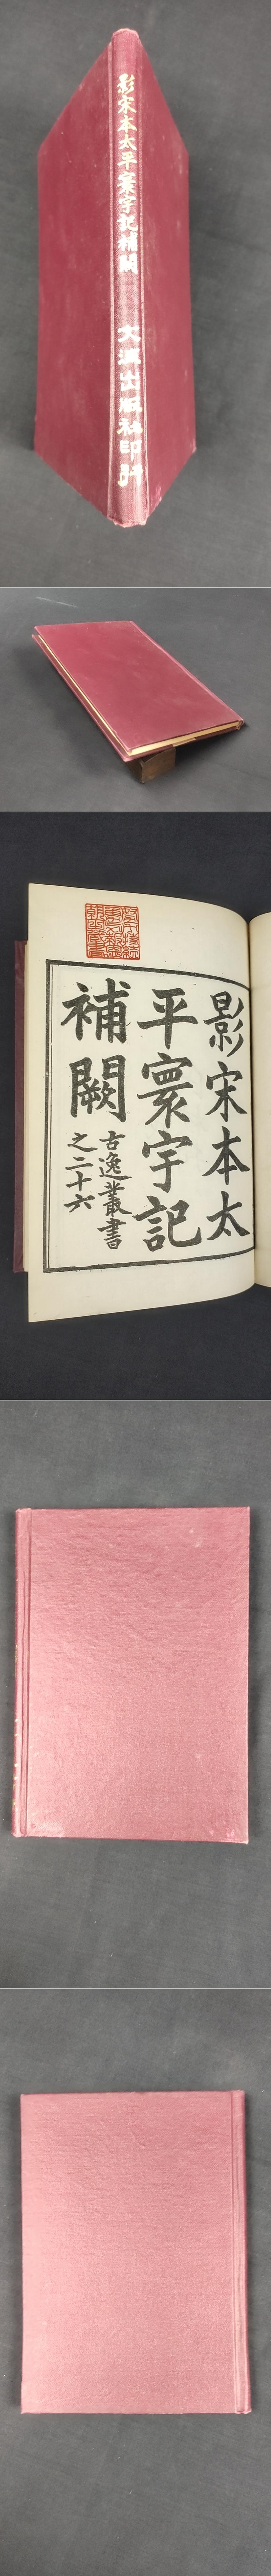 影宋本太平寰宇記補闕
文海出版社印行
影宋本太
平寰宇記
補闕
古逸叢書
之二十六